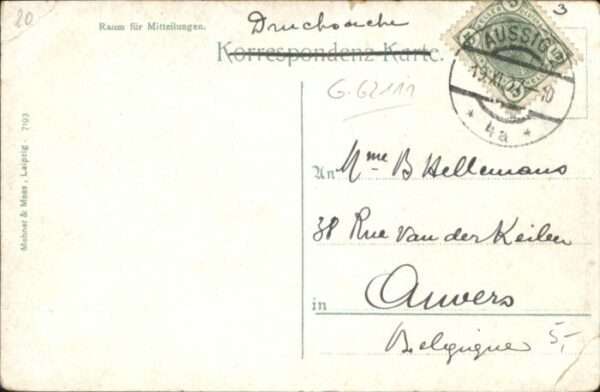 20
Raum für Mitteilungen.
Drucksache
Korrespondenz-Karte.
3
AUSSIG
* 4a *
G. G2111
Mohner & Maas, Leipzig - 7193
An Mme B Hellemans
38 Rue Van der Keilen
in Anvers
Belgique
5,-